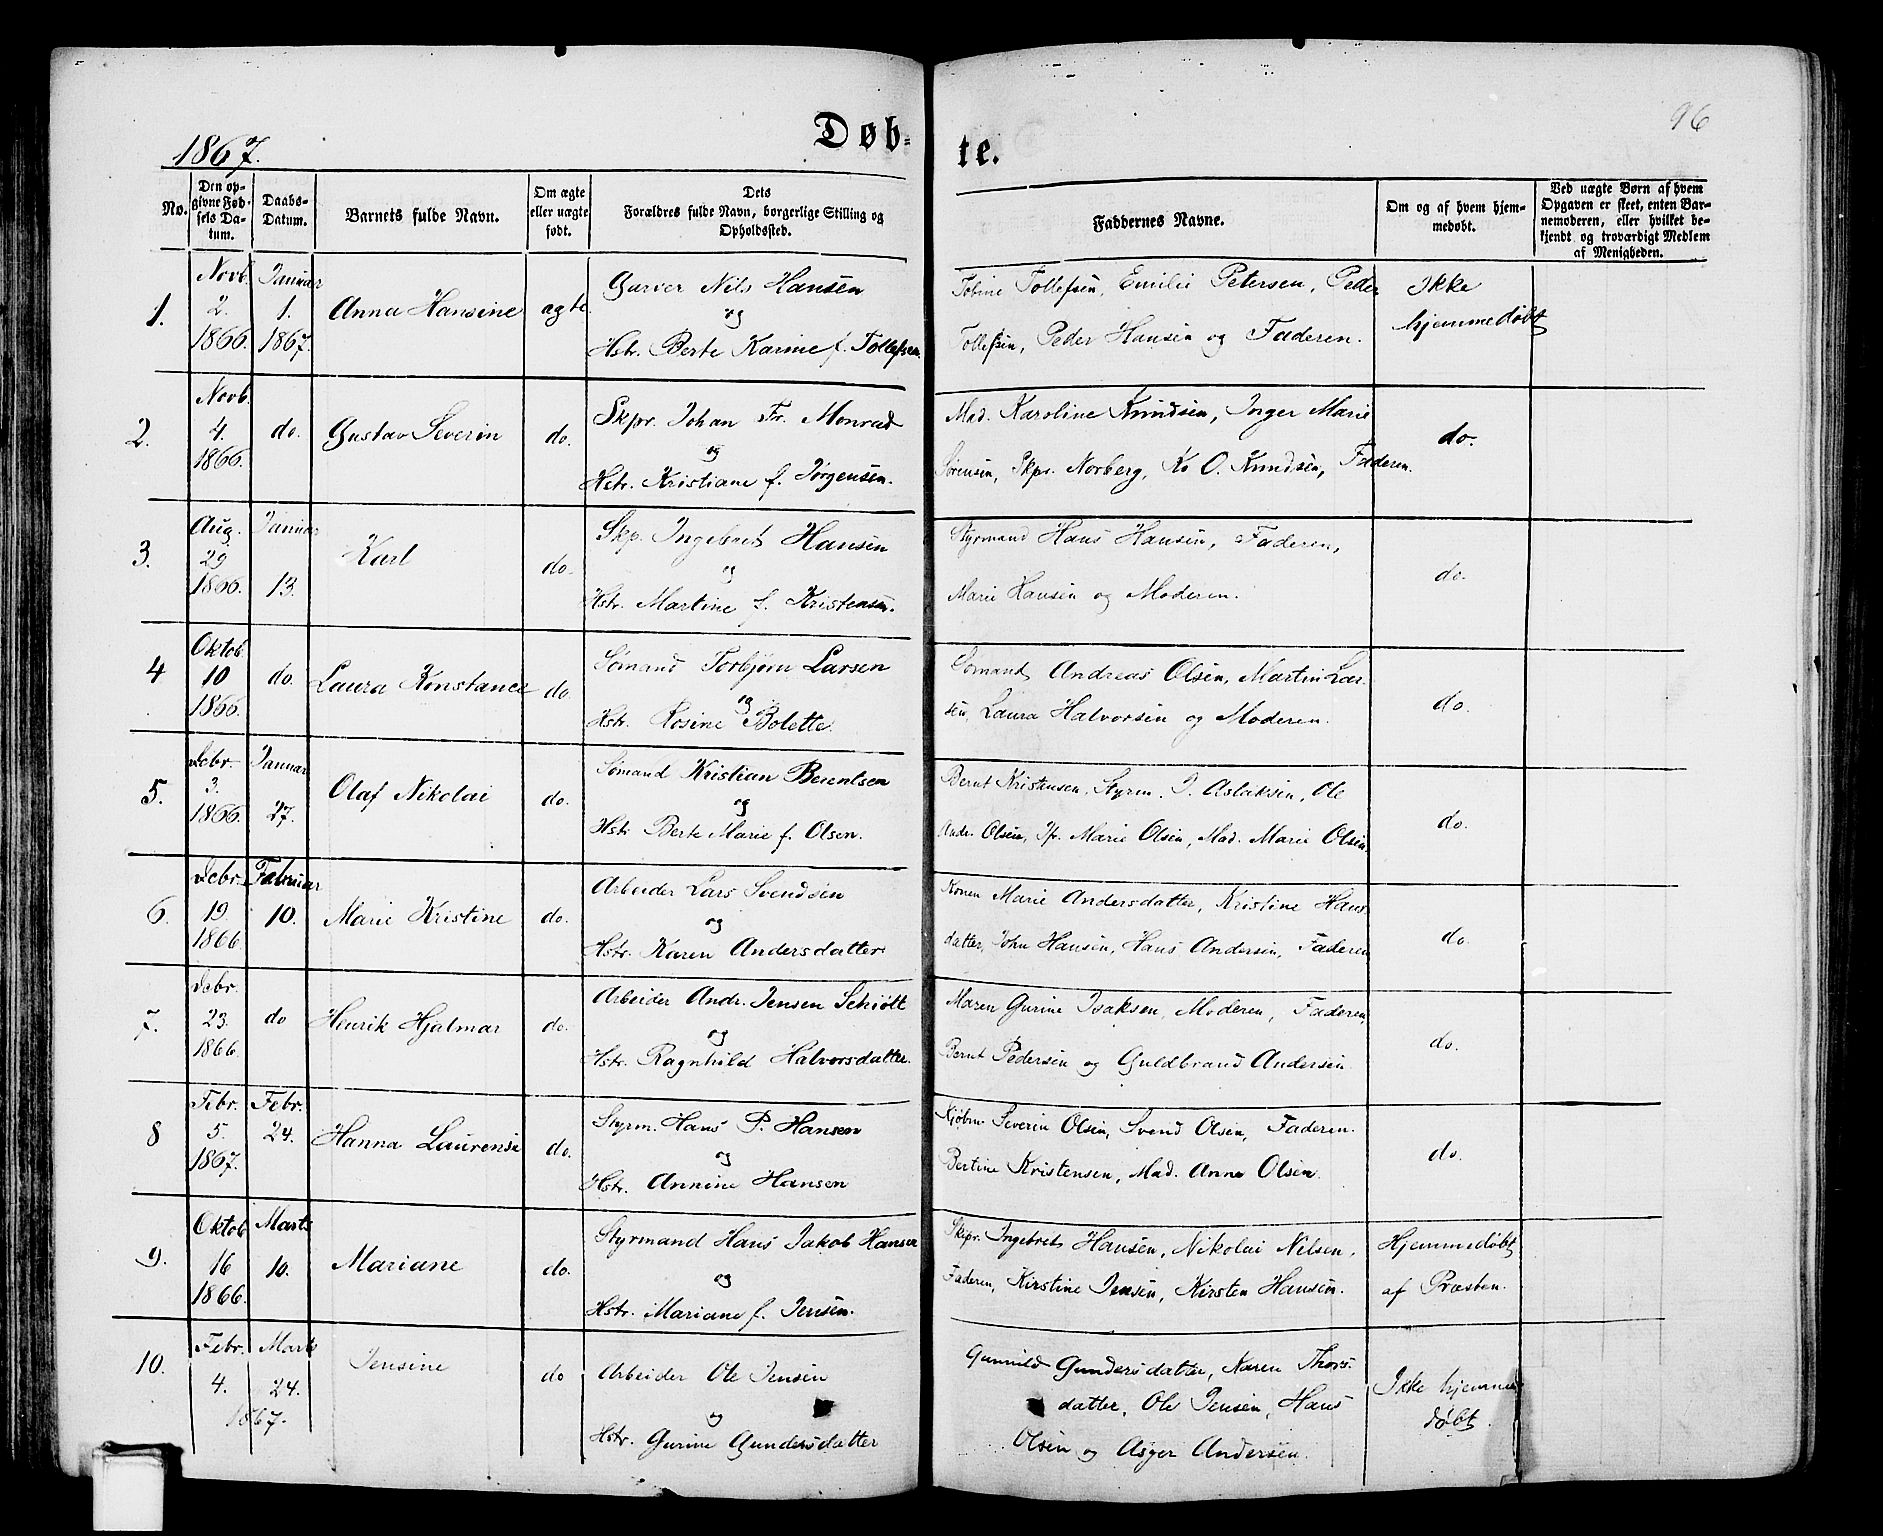 96
1867.
Døb-
te.
No.
Den op-
givne Fød-
sels Da-
tum.
Daabs-
Datum.
Barnets fulde Navn.
Om ægte
eller uægte
født.
Dets
Forældres fulde Navn, borgerlige Stilling og
Opholdssted.
Faddernes Navne.
Om og af hvem hjem-
medøbt.
Ved uægte Børn af hvem
Opgaven er skeet, enten Bar-
nemoderen, eller hvilket be-
kjendt og troværdigt Medlem
af Menigheden.
1.
Novb.
2.
1866.
Januar
1.
1867.
Anna Hansine
ægte.
Garver Nils Hansen
og
Hstr. Berte Karine f. Tollefsen.
Tobine Tollefsen, Emilie Petersen, Peder
Tollefsen, Peder Hansen og Faderen.
Ikke
hjemmedøbt
2.
Novb.
4.
1866.
do.
Gustav Severin
do.
Skpr. Johan Fr. Monrad
og
Hstr. Kristiane f. Jørgensen.
Mad. Karoline Knudsen, Inger Marie
Sørensen, Skpr. Norberg, K. O. Knudsen, Faderen.
do.
3.
Aug.
29
1866.
Januar
13.
Karl
do.
Skp. Ingebret Hansen
og
Hstr. Martine f. Kristensen.
Styrmand Hans Hansen, Faderen,
Marie Hansen og Moderen.
do.
4
Oktob.
10
1866.
do.
Laura Konstance
do.
Sømand Torbjørn Larsen
og
Hstr. Rosine Bolette.
Sømand Andreas Olsen, Martin Lar-
sen, Laura Halvorsen og Moderen.
do.
5.
Debr.
3.
1866.
Januar
27.
Olaf Nikolai
do.
Sømand Kristian Berentsen
og
Hstr. Berte Marie f. Olsen.
Bernt Kristensen, Styrm. J. Aslaksen, Ole
Andr. Olsen, Jfr. Marie Olsen, Mad. Marie Olsen.
do.
6.
Debr.
19.
1866.
Februar
10.
Marie Kristine
do.
Arbeider Lars Svendsen
og
Hstr. Karen Andersdatter.
Konen Marie Andersdatter, Kristine Hans-
datter, John Hansen, Hans Andersen, Faderen
do.
7.
Debr.
23.
1866.
do
Henrik Hjalmar
do.
Arbeider Andr. Jensen Schiøtt
og
Hstr. Ragnhild Halvorsdatter.
Maren Gurine Isaksen, Moderen, Faderen,
Bernt Pedersen og Guldbrand Andersen
do.
8
Febr.
5.
1867.
Febr.
24.
Hanna Laurense
do.
Styrm. Hans P. Hansen
og
Hstr. Annine Hansen
Kjøbm. Severin Olsen, Svend Olsen, Faderen.
Bertine Kristensen, Mad. Anna Olsen.
do.
9.
Oktob
16
1866.
Marts
10.
Mariane
do.
Styrmand Hans Jakob Hansen
og
Hstr. Mariane f. Jensen.
Skpr. Ingebret Hansen, Nikolai Nilsen,
Faderen, Kirstine Jensen, Kirsten Hansen.
Hjemmedøbt
af Præsten.
10.
Febr.
4.
Marts
24.
1867.
Jensine
do
Arbeider Ole Jensen
og
Hstr. Gurine Gundersdatter
Gunnild Gundersdatter, Karen Thors-
datter, Ole Jensen, Hans
Olsen og Asger Andersen.
Ikke hjemme-
døbt.